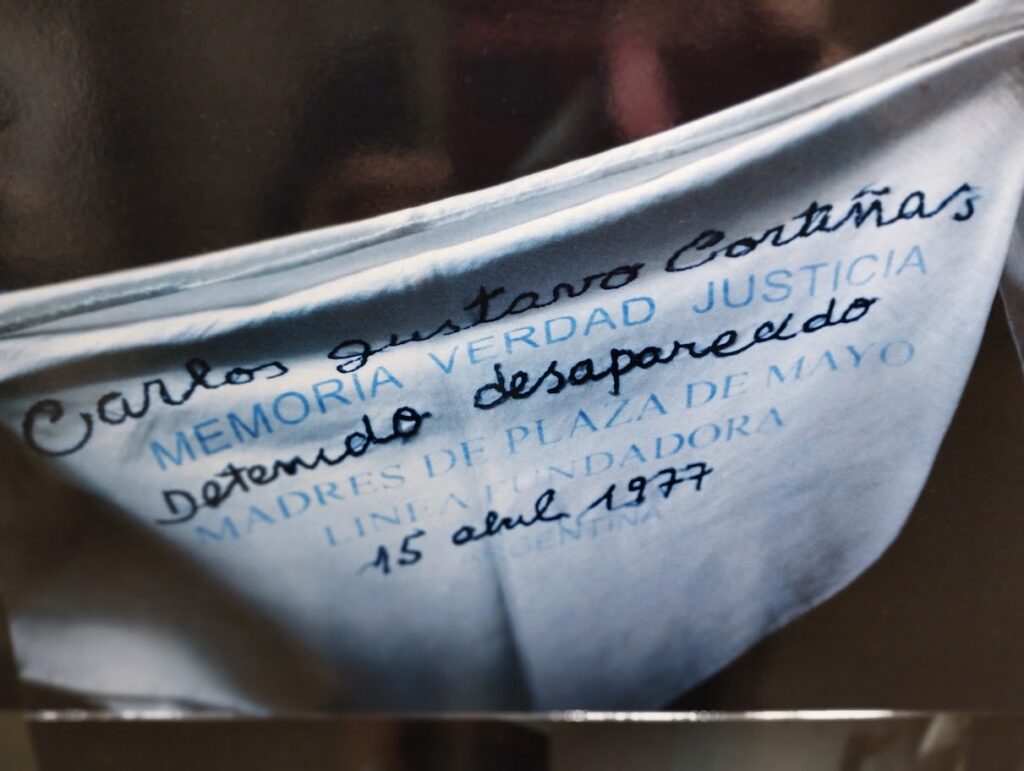 Carlos Gustavo Cortiñas
MEMORIA VERDAD JUSTICIA
Detenido desaparecido
MADRES DE PLAZA DE MAYO
LINEA FUNDADORA
15 abril 1977
ARGENTINA